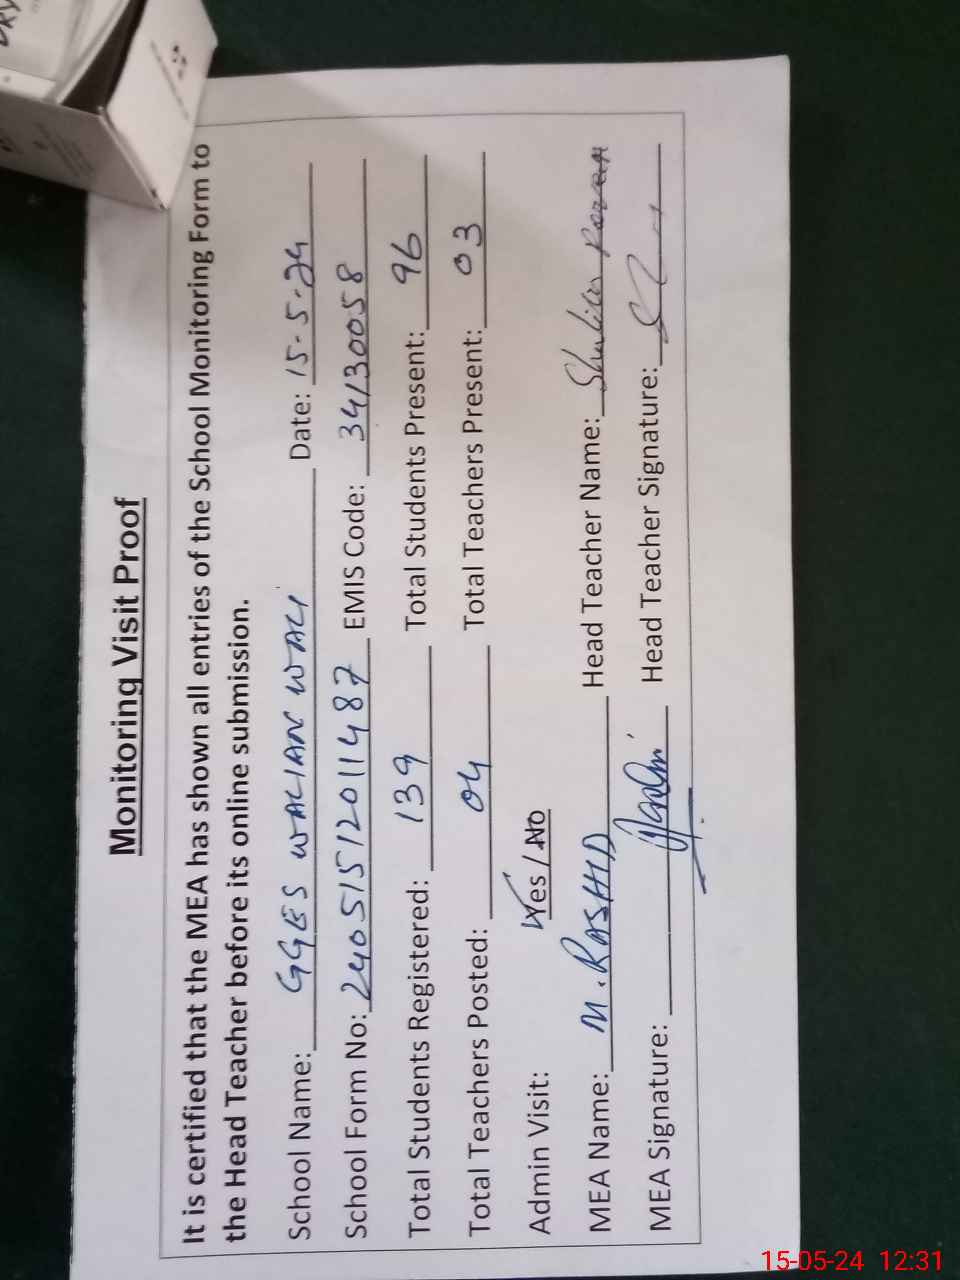 Monitoring Visit Proof
It is certified that the MEA has shown all entries of the School Monitoring Form to
the Head Teacher before its online submission.
School Name: GGES WALIAN WALI Date: 15-5-24
School Form No: 24051512011487 EMIS Code: 34130058
Total Students Registered: 139 Total Students Present: 96
Total Teachers Posted: 04 Total Teachers Present: 03
Admin Visit: Yes / No
MEA Name: M. RASHID Head Teacher Name:
MEA Signature: Head Teacher Signature:
15-05-24 12:31